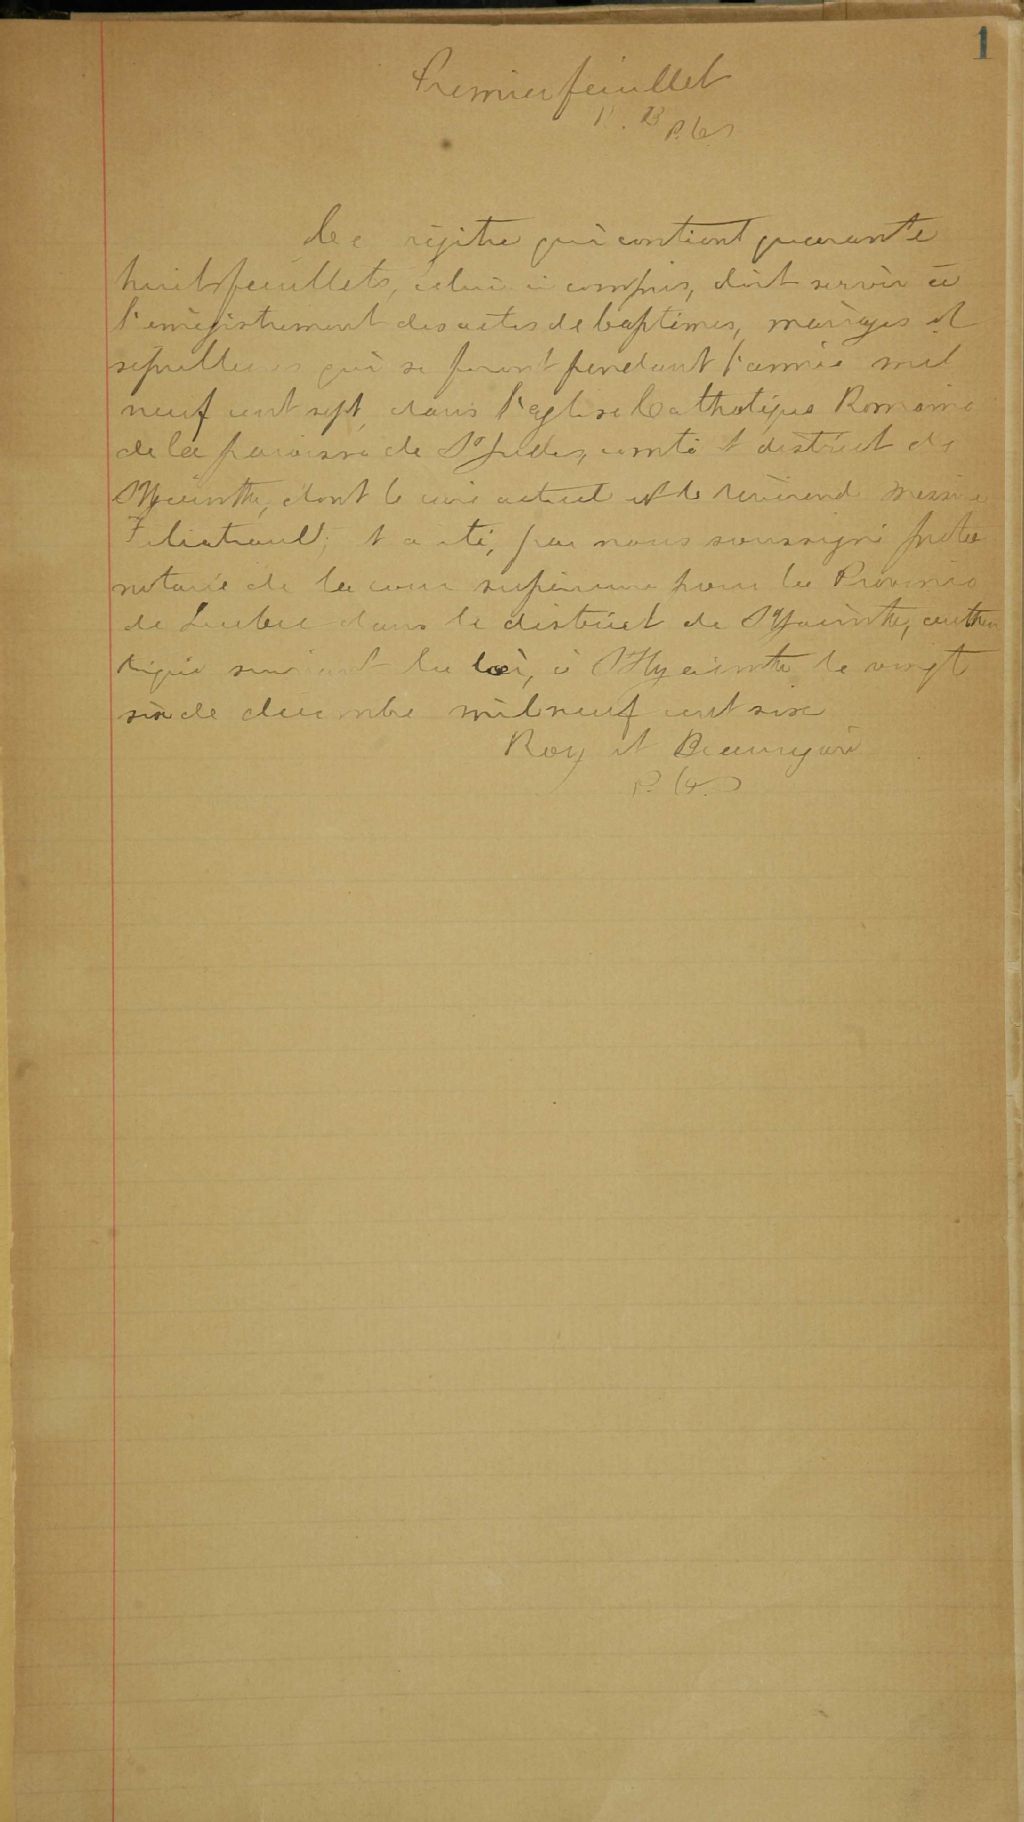 1
Premier feuillet
R. B P.C.S
Ce régitre qui contient quarante
huit feuillets, celui ci compris, doit servir à
l'enrégistrement des actes de baptêmes, mariages et
sépultures qui se feront pendant l'année mil
neuf cent sept, dans l'eglise Catholique Romaine
de la paroisse de St Jude, comté et district de
St Hyacinthe, dont le curé actuel est le révérend messire
Filiatrault; et a été, par nous soussigné proto
notaire de la cour supérieure pour la Province
de Québec dans le district de St Hyacinthe, authen
tiqué suivant la loi, à St Hyacinthe le vingt
six de décembre mil neuf cent six
Roy et Beauregard
P.C.S